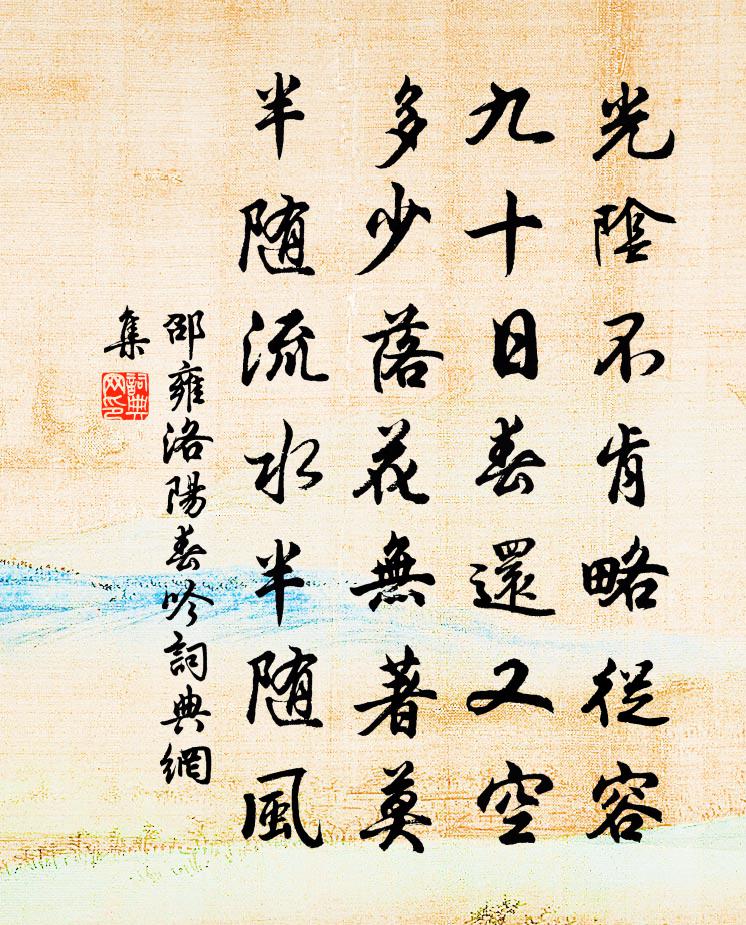 光陰不肯略從容
九十日春還又空
多少落花無著莫
半随流水半随風
邵雍洛陽春吟詞典網
集
詞典網印